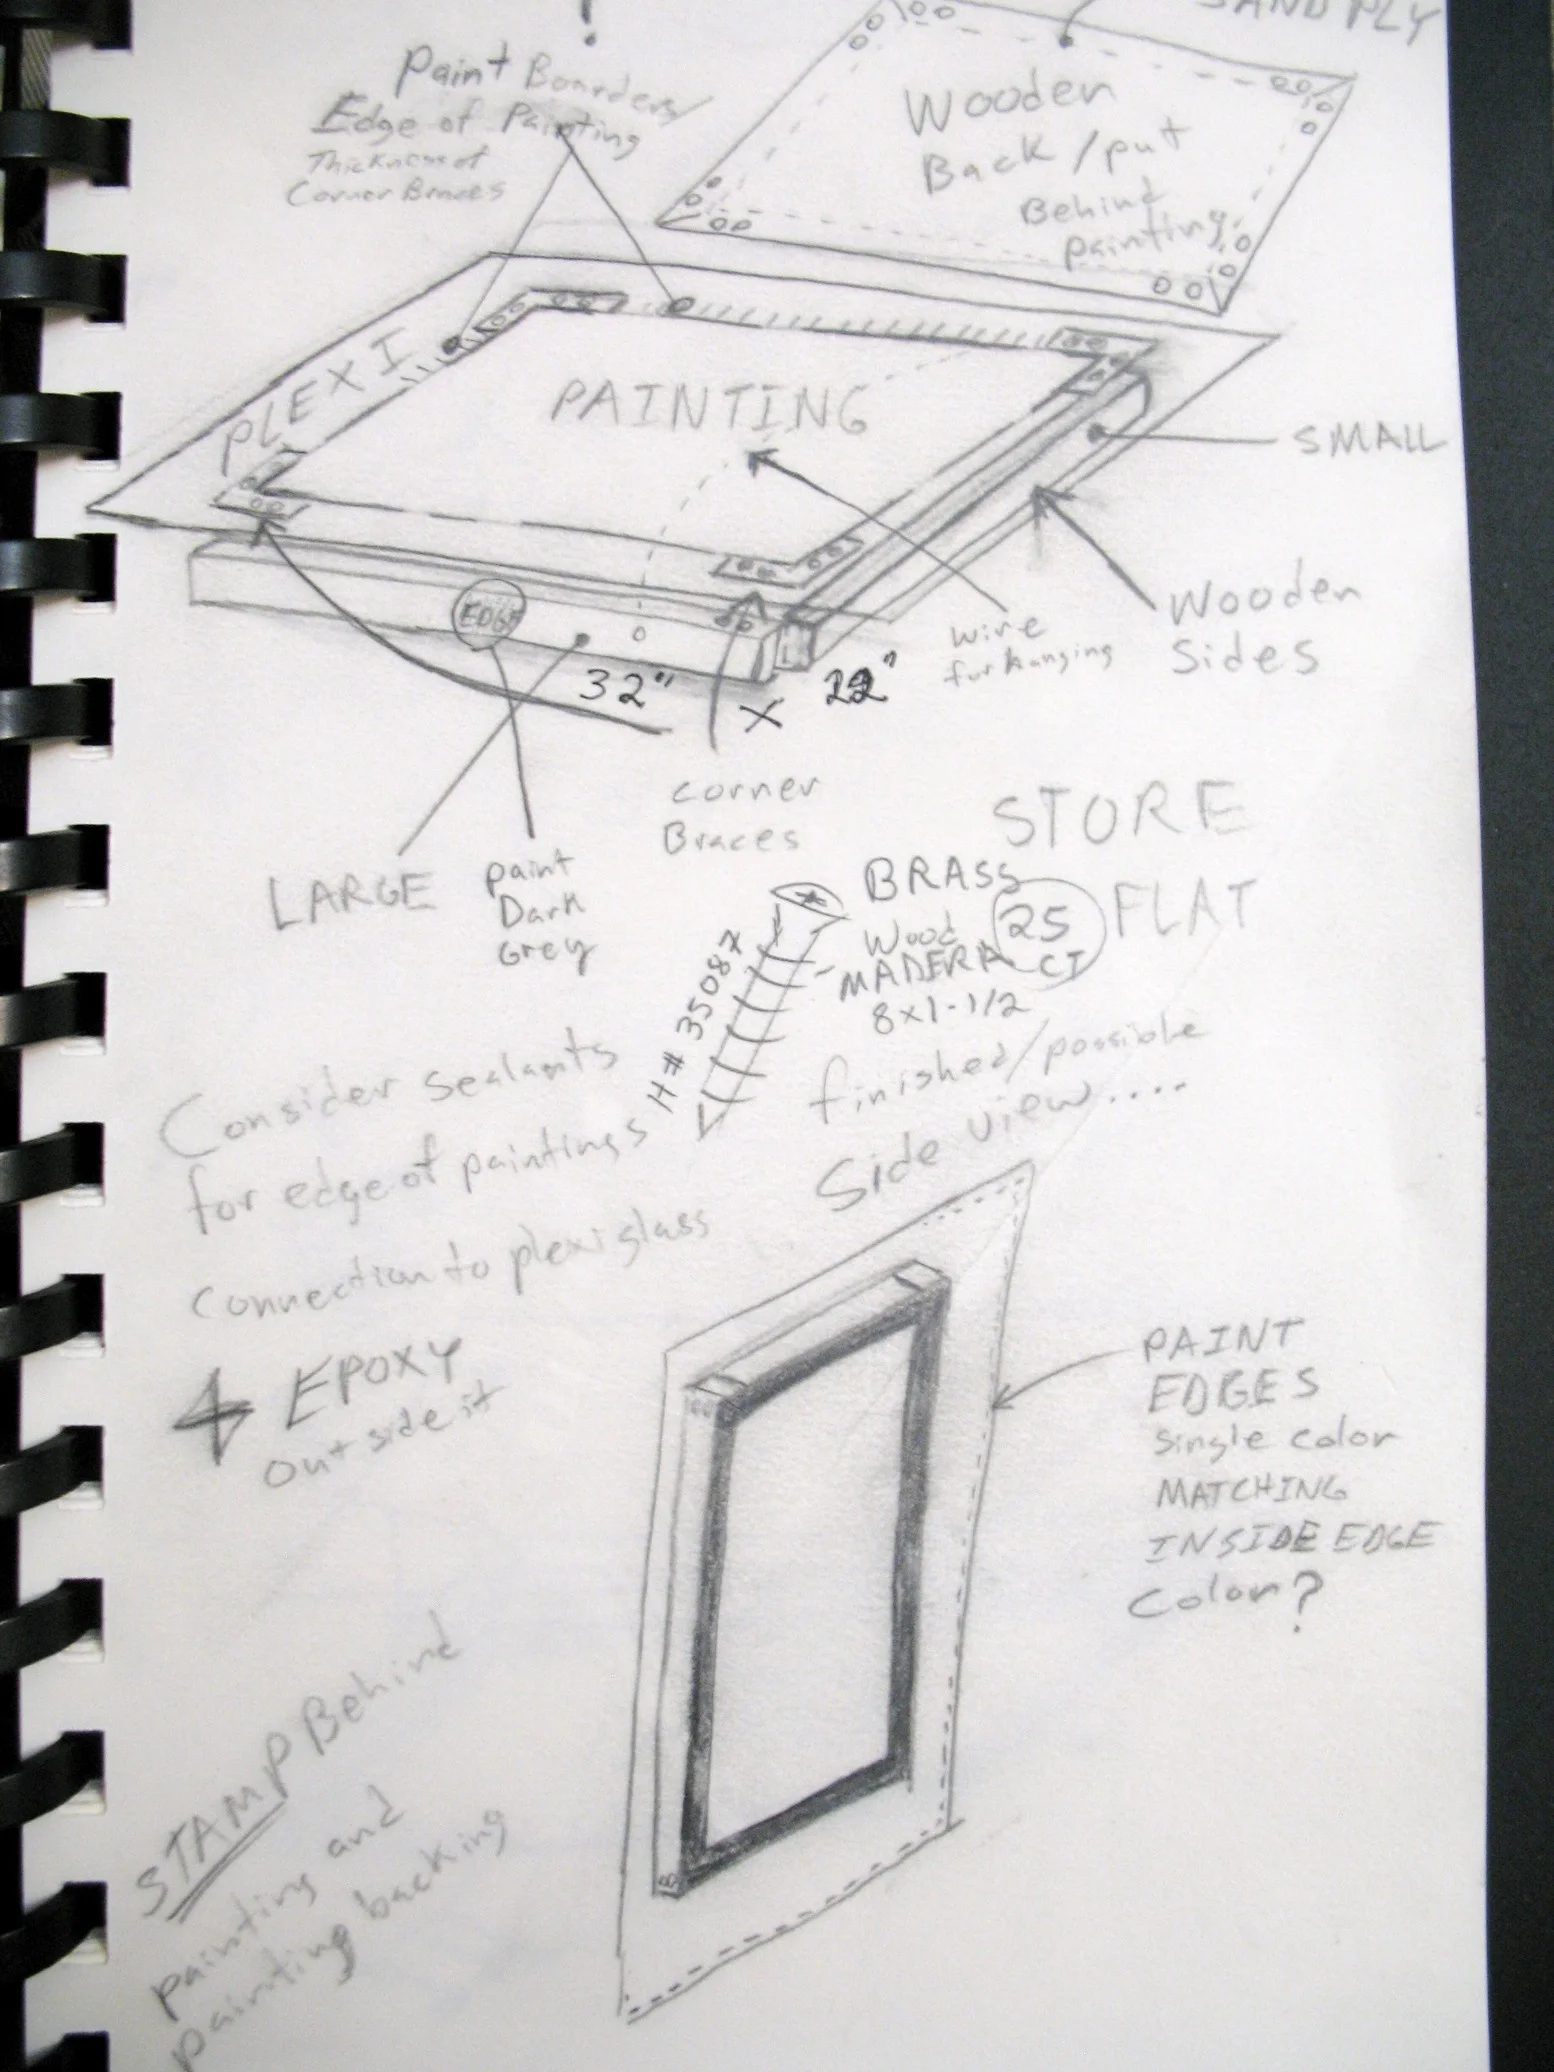 ?
SAND PLY
Paint Boarders/
Edge of Painting
Thickness of
Corner Braces
Wooden
Back/put
Behind
painting
PLEXI
PAINTING
SMALL
Wooden
Sides
wire
for hanging
EDGE
32" X 22"
corner
Braces
LARGE
paint
Dark
Grey
STORE
FLAT
BRASS
Wood
MADERA
8x1-1/2
25
CT
H# 35087
Consider sealants
for edge of paintings
connection to plexiglass
EPOXY
out side it
finished/possible
Side view....
PAINT
EDGES
Single color
MATCHING
INSIDE EDGE
Color?
STAMP Behind
painting and
painting backing